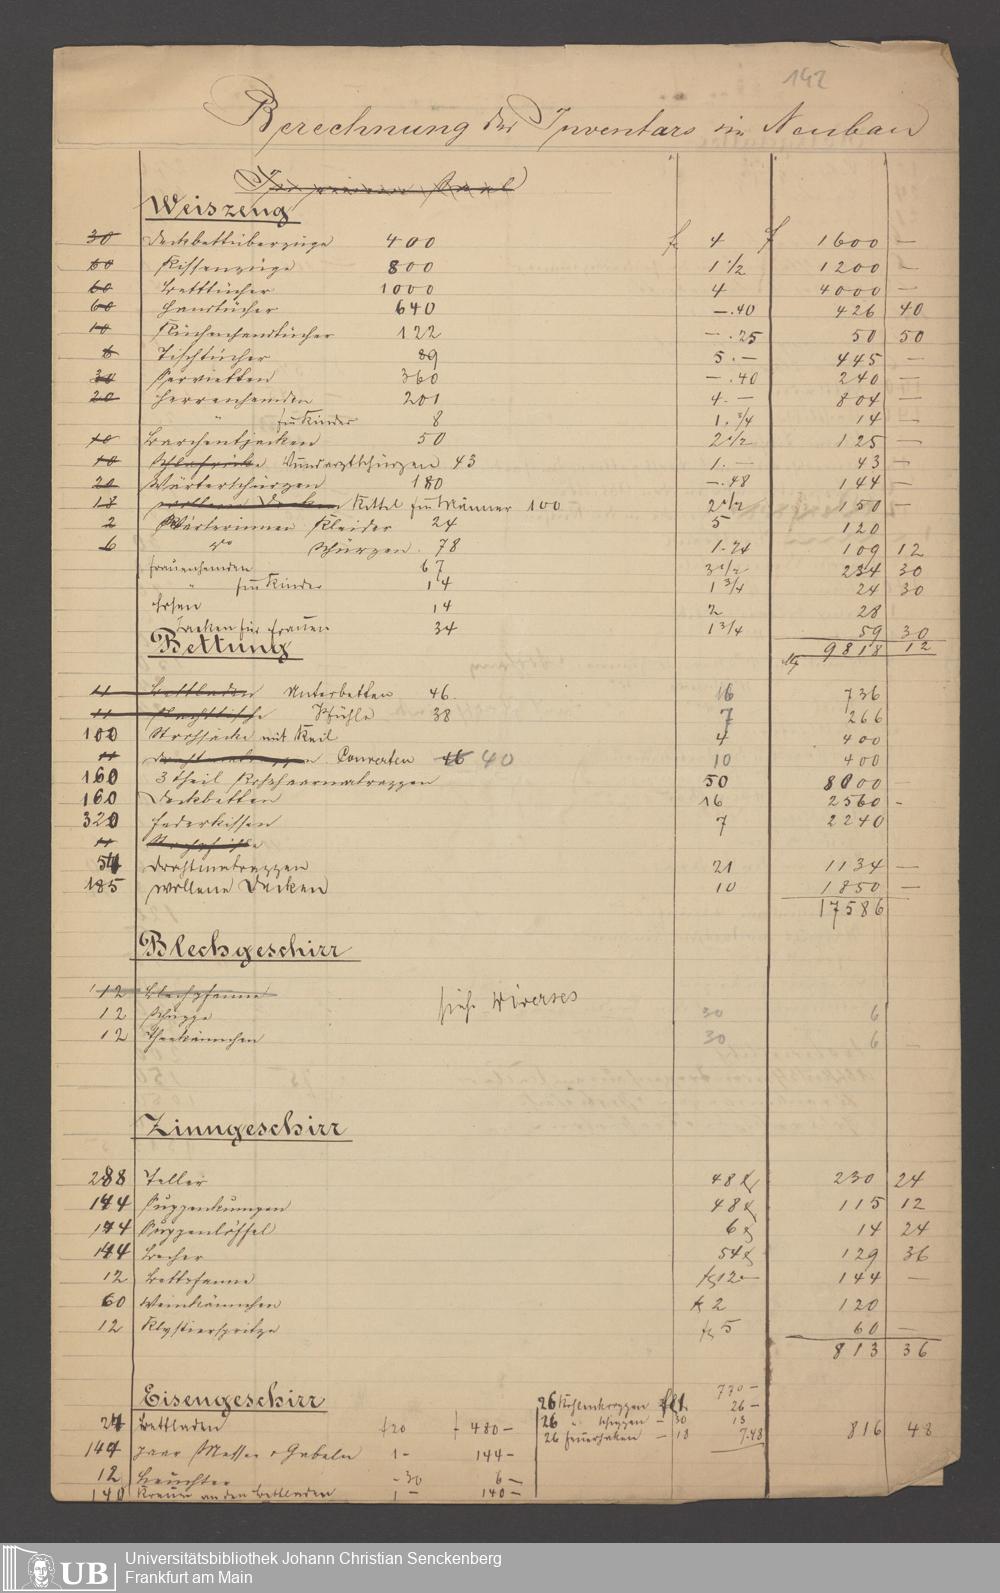 142
Berechnung des Inventars im Neubau
Weiszeug
30 Deckbettüberzüge 400 f 4 f 1600 —
60 Kissenzüge 800 1 1/2 1200 —
60 Betttücher 1000 4 4000 —
60 Handtücher 640 —.40 426 40
10 Küchenhandtücher 122 —.25 50 50
6 Tischtücher 89 5.— 445 —
30 Servietten 360 —.40 240 —
20 Herrenhemden 201 4.— 804 —
" für Kinder 8 1.3/4 14 —
10 Barchentjacken 50 2 1/2 125 —
10 Wundarztschürzen 43 1.— 43 —
20 Wärterschürzen 180 —.48 144 —
18 wollene Decken Kittel für Männer 100 2 1/2 150 —
2 Wärterinnen Kleider 24 5 120
6 do Schürzen 78 1.24 109 12
Frauenhemden 67 3 1/2 234 30
" für Kinder 14 1 3/4 24 30
Hosen 14 2 28
Jacken für Frauen 34 1 3/4 59 30
9818 12
Bettung
11 Bettladen Unterbetten 46 16 736
11 Nachttische Pfühle 38 7 266
100 Strohsäcke mit Keil 4 400
11 Couverten 46 40 10 400
160 3 theil Rosshaarmatrazzen 50 8000
160 Deckbetten 16 2560 -
320 Federkissen 7 2240
11
54 Drahtmatrazzen 21 1134 —
185 wollene Decken 10 1850 —
17586
Blechgeschirr
12 Blechpfanne
siehe Diverses
12 30 6
12 Theekännchen 30 6 —
Zinngeschirr
288 Teller 48 x 230 24
144 Suppenkumpen 48 x 115 12
144 Suppenlöffel 6 x 14 24
144 Becher 54 x 129 36
12 Bettpfanne f 12 — 144 —
60 Weinkännchen f 2 120
12 Klystierspritze f 5 60 —
813 36
Eisengeschirr
770 —
26 Kohlenkrazzen f 1. 26 —
24 Bettladen f 20 f 480 —
26 " Schippen — 30 13
816 48
26 Feuerhaken — 18 7.48
144 paar Messer & Gabeln 1 - 144 —
12 Leuchter - 30 6 —
140 an den Bettladen 1 — 140 —
UB
Universitätsbibliothek Johann Christian Senckenberg
Frankfurt am Main